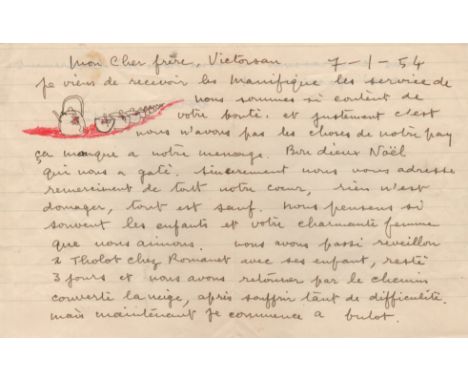 Mon Cher frère, Victorsan 7-1-54
Je viens de recevoir les Manifique les service de
nous sommes si content de
votre bonté. et justement c'est
nous n'avons pas les choses de notre pay
ça manque a notre menage. Bon dieux Noël
qui nous a gaté. sincerement nous vous adresse
remerciment de tout notre cœur, rien n'est
domager, tout est sauf. nous pensens si
souvent les enfants et votre charmante femme
que nous aimons. nous avons passi reveillon
a Tholot chez Romanet avec ses enfant, resté
3 jours et nous avons retourner par le chemin
converté la neige, après souffrir tant de difficulité.
mais maintenant je commence a bulot.